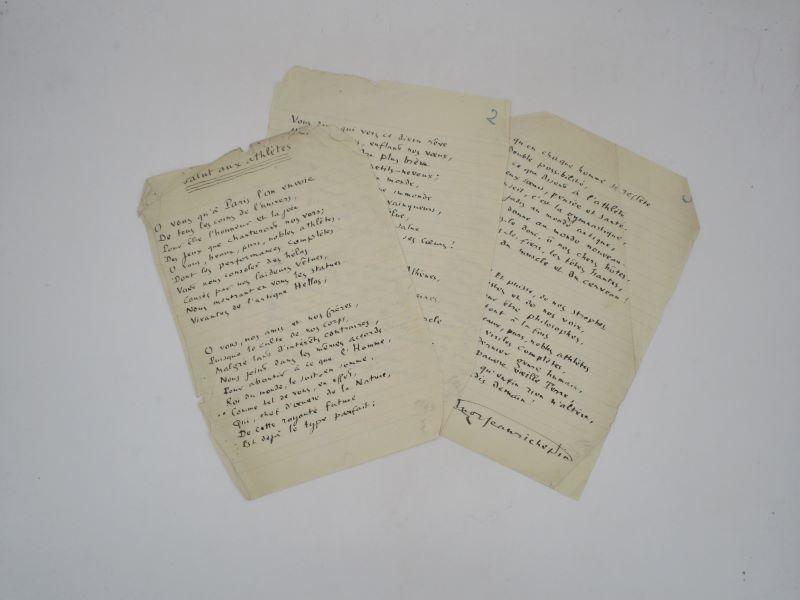 Salut aux athlètes
O vous qu'à Paris l'on envoie
De tous les coins de l'univers,
Pour être l'honneur et la joie
Des jeux que chanteront nos vers;
O vous, beaux, purs, nobles athlètes,
Dont les performances complètes
Vont nous consoler des hélas
Causés par nos laideurs vêtues,
Nous montrant en vous les statues
Vivantes de l'antique Hellas;
O vous, nos amis et nos frères,
Puisque le culte de nos corps,
Malgré tant d'intérêts contraires,
Nous joint dans les mêmes accords
Pour aboutir à ce que l'Homme,
Roi du monde, le soit en somme,
Comme tel de vous, en effet,
Qui, chef d'œuvre de la Nature,
De cette royauté future
Est déjà le type parfait;
2
Vous qui vers ce divin rêve
enflant nos vœux,
plus brève
petits-neveux;
monde,
immonde
vainqueurs,
salue
des cœurs!
Athènes,
qu'en chaque homme se reflète
double possibilité,
ce que disent à l'athlète
deux sœurs, pensée et santé.
c'est la gymnastique,
jadis au monde antique,
donne au monde nouveau.
donc, ô nos chers hôtes.
fiers, les têtes hautes,
du muscle et du cerveau!
Et puisse, de nos strophes
et de nos voix,
être philosophes,
à la fois
beaux, purs, nobles athlètes
viriles complètes,
dernier genre humain,
pauvre vieille Terre
qu'enfin rien n'altère,
dès demain!
Jean Richepin